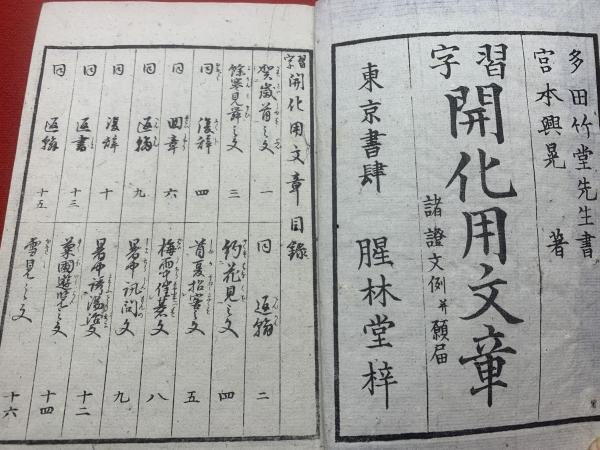 多田竹堂先生書
宮本興晃 著
習字 開化用文章
諸證文例并願届
東京書肆 腥林堂梓
習字開化用文章目録
賀歳首之文 一
同 返翰 二
餘寒見舞之文 三
約花見之文 四
同 復辞 四
首夏招客之文 五
同 回章 六
梅雨中催碁文 八
同 返翰 九
暑中訊問文 九
同 復辞 十
暑中誘温泉文 十二
同 返書 十三
菓園遊覧之文 十四
同 返翰 十五
雪見之文 十六